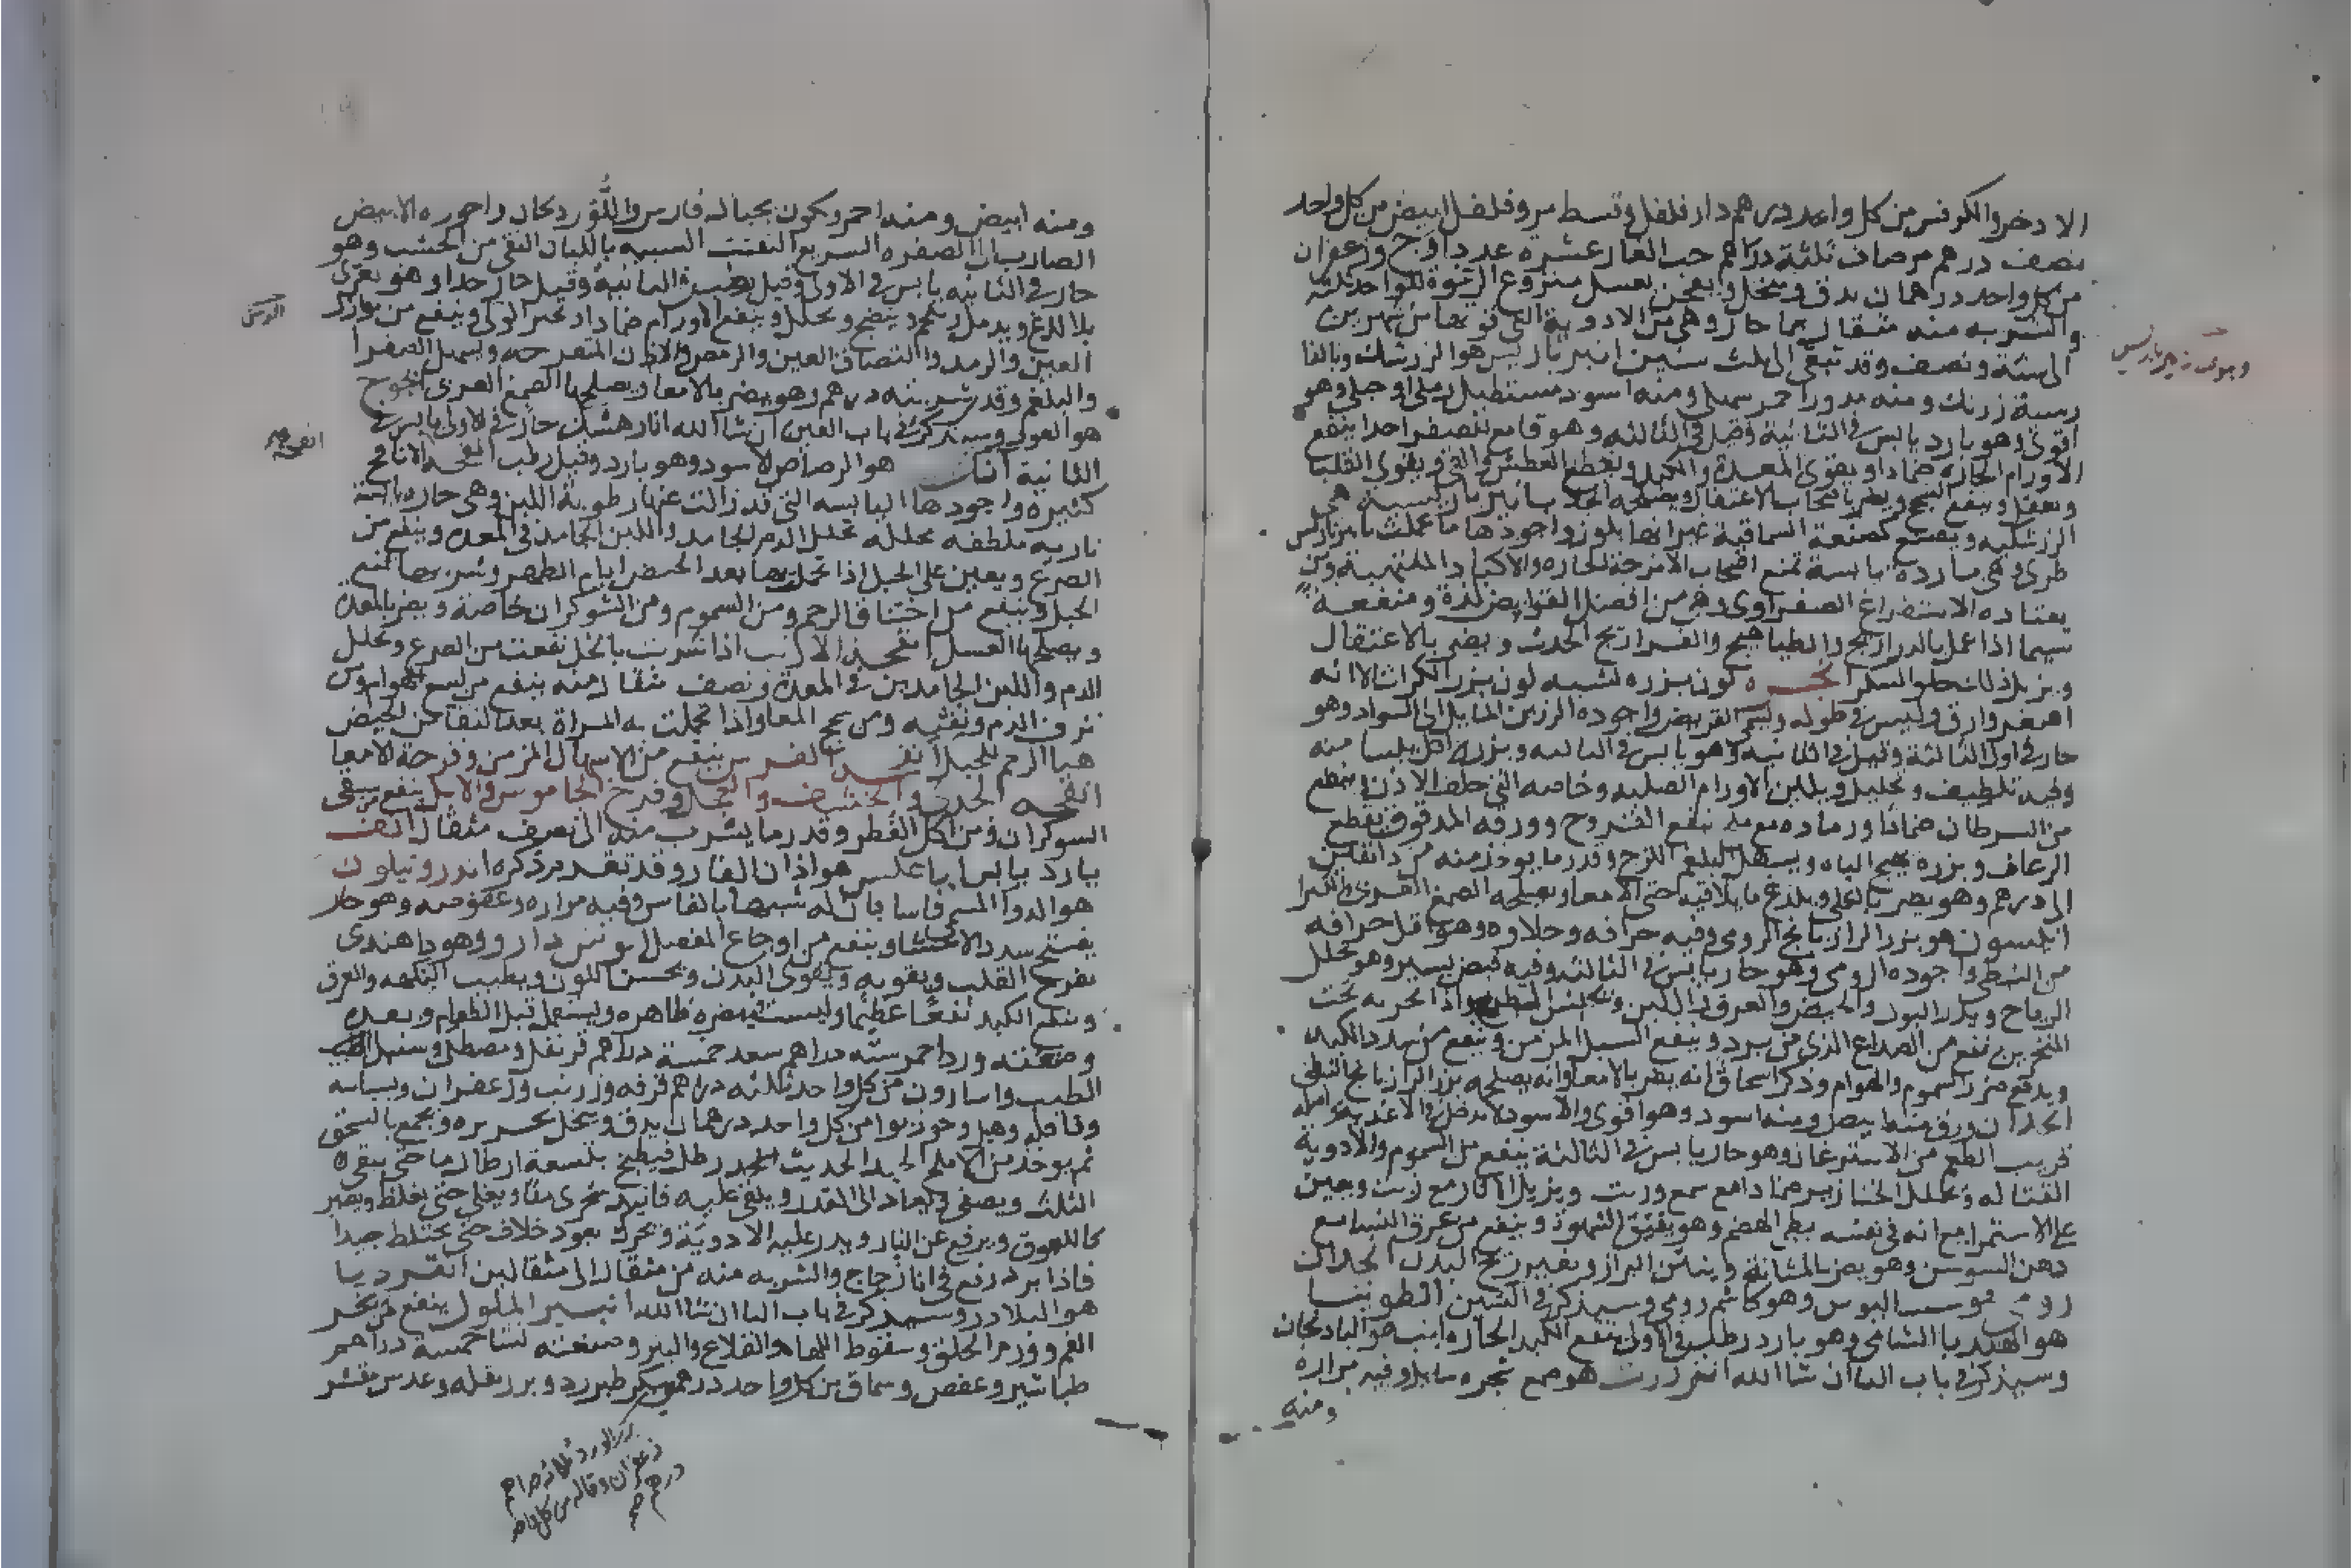 الادخر والكرفس من كل واحد درهم دار فلفل وقسط مر وفلفل ابيض من كل واحد
نصف درهم مر صاف ثلثة دراهم حب الغار عشره عددا وج وزعفران
من كل واحد درهمان يدق وينخل ويعجن بعسل منزوع الرغوة للواحد ثلثة
والشربه منه مثقال بما حار وهى من الادوية التى قوتها من شهرين
الى سنة ونصف وقد تبقى الى ثلث سنين انبرباريس هو الزرشك وبالفا
رسية زرنك ومنه مدور احمر سهلى ومنه اسود مستطيل رملى او جبلى وهو
اقوى وهو بارد يابس فى الثانية وقيل فى الثالثه وهو قامع للصفرا جدا ينفع
الاورام الحاره ضمادا ويقوى المعدة والكبد ويقطع العطش والقى ويقوى القلب
ويعقل وينفع السحج ويضر باصحاب الاعتقال ويصلحه الجلاب انبرباريسية هى
الزرشكيه ويصنع كصنعة السماقية غير انها بلوز واجودها ما عملت بانبرباريس
طرى وهى بارده يابسة تمنع اصحاب الامزجة الحاره والاكباد الملتهبة ومن
يعتاده الاستفراغ الصفراوى وهى من افضل القوابض لذة ومنفعة
سيما اذا عمل بالدراريج والطياهيج والفراريج الحدث ويضر بالاعتقال
ويزيل ذلك حلو السكر انجره لون بزره تشبه لون بزر الكراث الا انه
اصغر وارق وليس فى طوله ويسمى القريض واجوده الرزين المايل الى السواد وهو
حار فى اول الثالثة وقيل فى الثانيه وهو يابس فى الثانيه وبزره اقل يبسا منه
وفيه تلطيف وتحليل ويلين الاورام الصلبه وخاصه التى خلف الاذن ويقطع
من السرطان ضمادا ورماده مع ملح ينفع القروح وورقه المدقوق يقطع
الرعاف وبزره يهيج الباه ويسهل البلغم اللزج وقدر ما يوخذ منه من دانقين
الى درهم وهو يضر بالكلى ويلذع ما يلاقيه حتى الامعا ويصلحه الصمغ العربى والكثيرا
انيسون هو بزر الرازيانج الرومى وفيه حرافه وحلاوه وهو اقل حرافه
من النبطى واجوده الرومى وهو حار يابس فى الثالثه وفيه قبض يسير وهو يحلل
الرياح ويدر البول والحيض والعرق واللبن واذا بخر به تحت
المنخرين نفع من الصداع الذى من برد وينفع السبل المزمن وينفع من سدد الكبد
ويدفع ضرر السموم والهوام وذكر اسحاق انه يضر بالامعا وانه يصلحه بزر الرازيانج النبطى
انجدان ورق منه ابيض ومنه اسود وهو اقوى والاسود لا يدخل فى الاغذيه
قريب الطعم من الاشترغاز وهو حار يابس فى الثالثة ينفع من السموم والادوية
القتاله وتحلل الخنازير ضمادا مع شمع وزيت ويزيل الاثار مع زيت ويعين
على الاستمرا مع انه فى نفسه بطى الهضم وهو يفتق الشهوة وينفع من عرق النسا مع
دهن السوسن وهو يضر بالمثانة وينتن البراز ويغير ريح البدن انجدان
رومى هو سساليوس وهو كاشم رومى وسيذكر فى السين انطوبيا
هو الهندبا الشامى وهو بارد رطب فى الاولى ينفع الكبد الحاره انب هو الباذنجان
وسيذكر فى باب البا ان شا الله انزروت هو صمغ شجره شايك وفيه مراره
ومنه
ومنه ابيض ومنه احمر ويكون بجبال فارس واللور دكان واجوده الابيض
الضارب الى الصفره السريع التفتت الشبيه باللبان النقى من الخشب وهو
حار فى الثانيه يابس فى الاولى وقيل رطب فى الثانية وقيل حار جدا وهو يغرى
بلا لذع ويدمل ويلحم وينضج ويحلل وينفع الاورام ضمادا وتجبر الوثى وينفع من نوازل
العين والرمد والتصاق العين والرمص والاذن المتقرحه ويسهل الصفرا
والبلغم وقدر شربته درهم وهو يضر بالامعا ويصلحها الصمغ العربى انجوج
هو العود وسيذكر فى باب العين ان شا الله اناردهشك حار فى الاولى يابس فى
الثانية آنك هو الرصاص الاسود وهو بارد وقيل رطب انفحه الانافح
كثيره واجودها اليابسه التى قد زالت عنها رطوبة اللبن وهى حاره يابسة
ناريه ملطفه محلله تحلل الدم الجامد واللبن الجامد فى المعده وينفع من
الصرع ويعين على الحبل اذا تحمل بها بعد الحيض ايام الطهر وشربها يمنع
الحبل وينفع من اختناق الرحم ومن السموم ومن الشوكران خاصة ويضر بالمعدة
ويصلحها العسل انفحة الارنب اذا شربت بالخل نفعت من الصرع وتحلل
الدم واللبن الجامدين فى المعدة ونصف مثقال منه ينفع من لسع الهوام ومن
نزف الدم ونفثه ومن سحج المعا واذا تحملت به المراة بعد النقا من الحيض
هيا الرحم للحبل انفحة الفرس ينفع من الاسهال المزمن وقرحة الامعا
انفحه الجدى والخشف والعجل وفرخ الجاموس والايل ينفع من سقى
السوكران ومن اكل الفطر وقدر ما يشرب منه الى نصف مثقال انفت
بارد يابس اناغلس هو اذان الفار وقد تقدم ذكره اندروتيلون
هو الدوا المسمى فاسا قال له شبيها بالفاس وفيه مراره وعفوصه وهو حار
يفتح سدد الاحشا وينفع من اوجاع المفصل انوش دارو وهو دوا هندى
يفرح القلب ويقويه ويقوى البدن ويحسن اللون ويطيب النكهه والعرق
وينفع الكبد نفعا عظيما وليست فيه مضره ظاهره ويستعمل قبل الطعام وبعده
وصنعته ورد احمر سته دراهم سعد خمسة دراهم قرنفل ومصطكى وسنبل الطيب
الطيب واسارون من كل واحد ثلثه دراهم قرفه وزرنب وزعفران وبسباسه
وقاقله وهيل وجوزبوا من كل واحد درهمان يدق وينخل بحريره ويجمع بالسحق
ثم يوخذ من الاملج الجيد الحديث الجدد رطل فيطبخ بتسعة ارطال ما حتى يبقى
الثلث ويصفى ويعاد الى القدر ويلقى عليه فانيد سجزى منا ويغلى حتى يغلظ ويصير
كاللعوق ويرفع عن النار ويذر عليه الادوية ويحرك بعود خلاف حتى يختلط جيدا
فاذا برد رفع فى انا زجاج والشربه منه من مثقال الى مثقالين انقرديا
هو البلادر وسيذكر فى باب البا ان شا الله انبير الملول ينفع من بخر
الفم وورم الحلق وسقوط اللهاه والقلاع والبثر وصنعته نشا خمسة دراهم
طباشير وعفص وسماق من كل واحد درهم سكر طبرزد وبزر بقله وعدس مقشر
بزر الورد ثلاثة دراهم
زعفران وقاقله من كل واحد
درهم